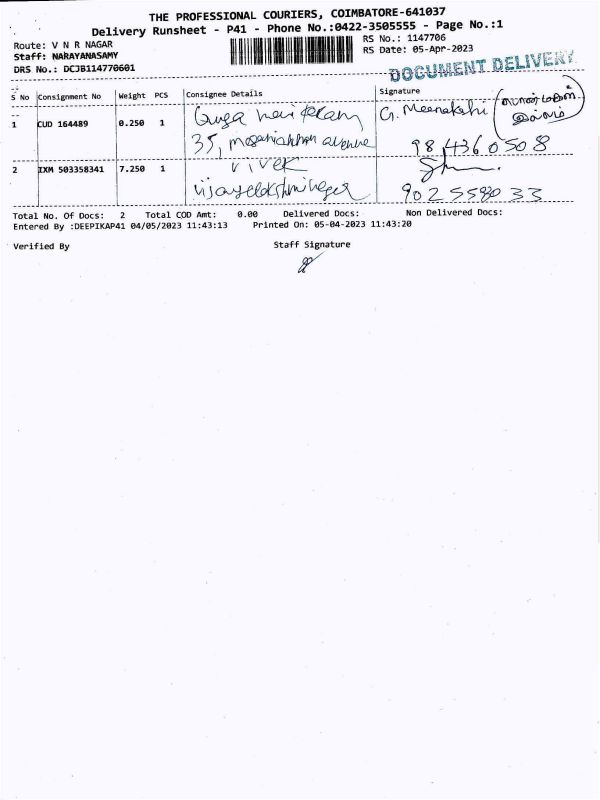 THE PROFESSIONAL COURIERS, COIMBATORE-641037
Delivery Runsheet - P41 - Phone No.:0422-3505555 - Page No.:1
Route: V N R NAGAR
RS No.: 1147706
Staff: NARAYANASAMY
RS Date: 05-Apr-2023
DRS No.: DCJB114770601
DOCUMENT DELIVERY
S No Consignment No Weight PCS Consignee Details Signature
1 CUD 164489 0.250 1
G. Meenakshi
35,
98 4360508
2 IXM 503358341 7.250 1 Vivek
9025598033
Total No. Of Docs: 2 Total COD Amt: 0.00 Delivered Docs: Non Delivered Docs:
Entered By :DEEPIKAP41 04/05/2023 11:43:13 Printed On: 05-04-2023 11:43:20
Verified By Staff Signature